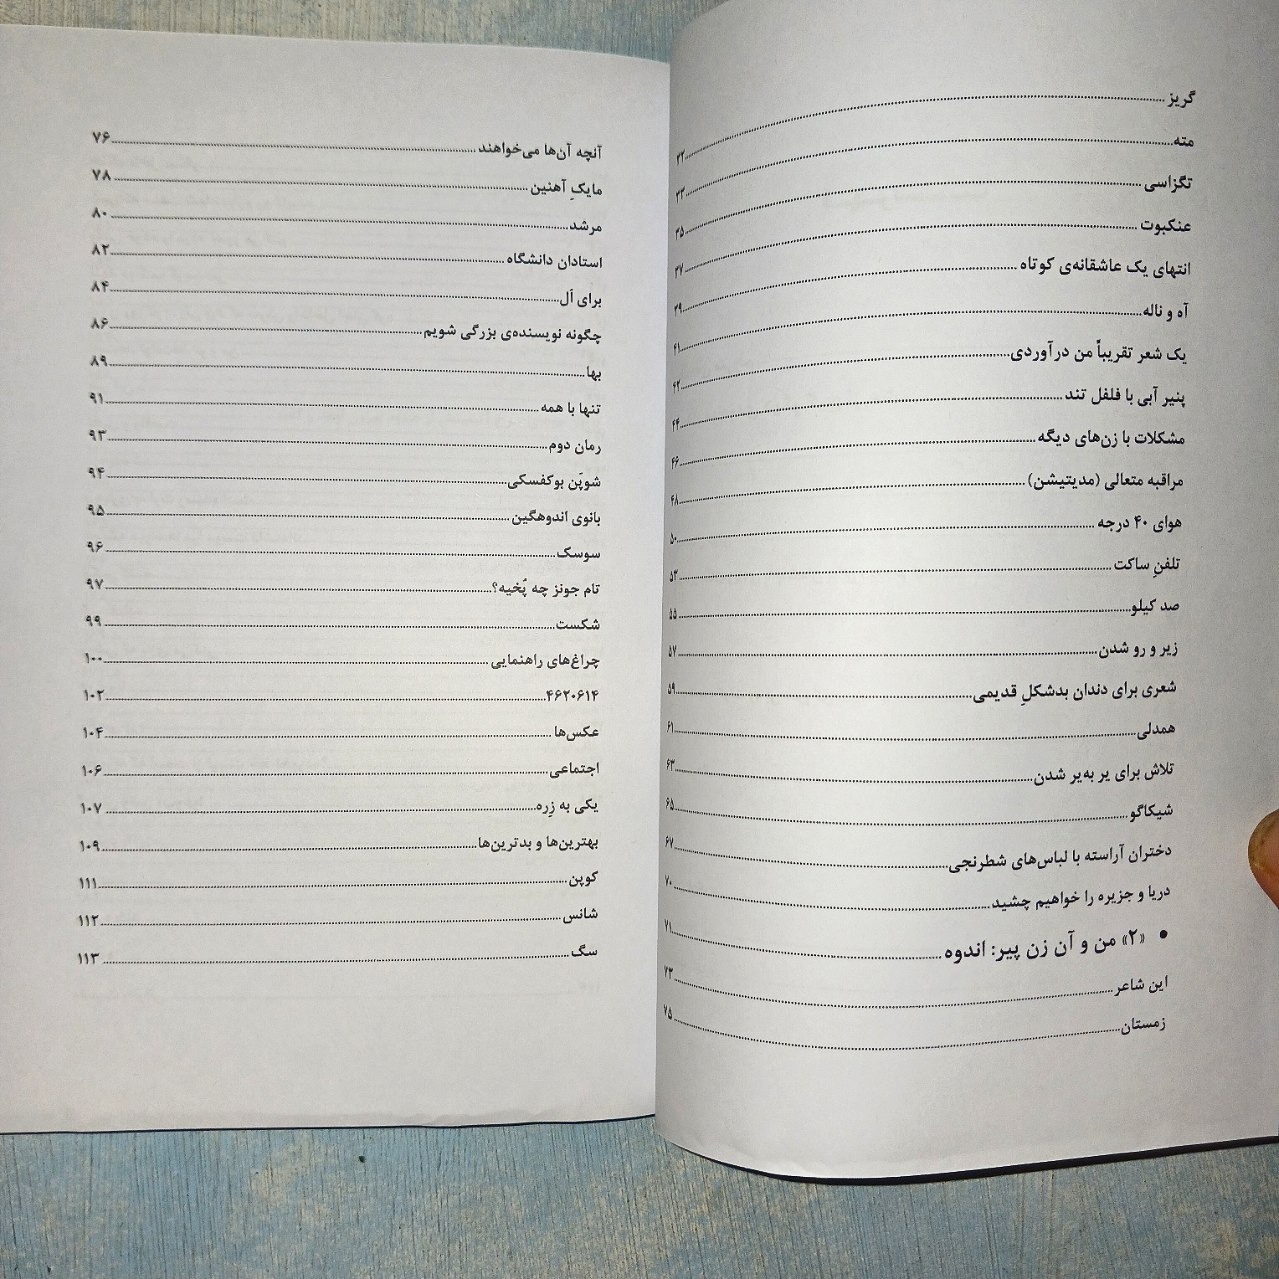 گریز ۳۲
مته ۳۳
تگزاسی ۳۵
عنکبوت ۳۷
انتهای یک عاشقانه‌ی کوتاه ۳۹
آه و ناله ۴۱
یک شعر تقریباً من درآوردی ۴۲
پنیر آبی با فلفل تند ۴۴
مشکلات با زن‌های دیگه ۴۶
مراقبه متعالی (مدیتیشن) ۴۸
هوای ۴۰ درجه ۵۰
تلفنِ ساکت ۵۳
صد کیلو ۵۵
زیر و رو شدن ۵۷
شعری برای دندان بدشکلِ قدیمی ۵۹
همدلی ۶۱
تلاش برای یر به‌یر شدن ۶۳
شیکاگو ۶۵
دختران آراسته با لباس‌های شطرنجی ۶۷
دریا و جزیره را خواهیم چشید ۷۰
• «۲» من و آن زن پیر: اندوه ۷۱
این شاعر ۷۳
زمستان ۷۵
آنچه آن‌ها می‌خواهند ۷۶
مایکِ آهنین ۷۸
مرشد ۸۰
استادان دانشگاه ۸۲
برای اَل ۸۴
چگونه نویسنده‌ی بزرگی شویم ۸۶
بها ۸۹
تنها با همه ۹۱
رمان دوم ۹۳
شوپَن بوکفسکی ۹۴
بانوی اندوهگین ۹۵
سوسک ۹۶
تام جونز چه پُخیه؟ ۹۷
شکست ۹۹
چراغ‌های راهنمایی ۱۰۰
۴۶۲۰۶۱۴ ۱۰۲
عکس‌ها ۱۰۴
اجتماعی ۱۰۶
یکی به زِره ۱۰۷
بهترین‌ها و بدترین‌ها ۱۰۹
کوپن ۱۱۱
شانس ۱۱۲
سگ ۱۱۳